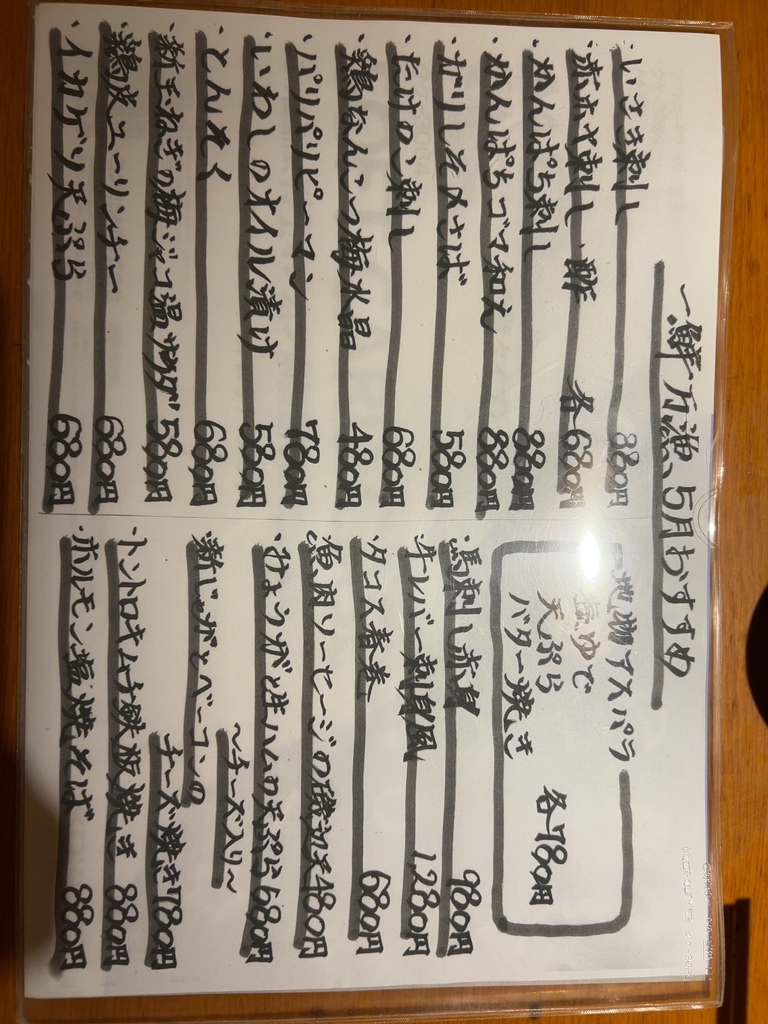 〜鮮万漁、5月おすすめ
・いさき刺し 880円
・赤ホヤ刺し・酢 各680円
・かんぱち刺し 880円
・かんぱちゴマ和え 880円
・ガリしそ〆さば 580円
・たけのこ刺し 680円
・鶏なんこつ梅水晶 480円
・パリパリピーマン 780円
・いわしのオイル漬け 580円
・とんそく 680円
・新玉ねぎの梅ジャコ温サラダ 580円
・鶏皮ユーリンチー 680円
・イカゲソ天ぷら 680円
地物アスパラ
塩ゆで
天ぷら
バター焼き
各780円
・馬刺し赤身 980円
・牛レバー刺身風 1280円
・タコス春巻 680円
・魚肉ソーセージの磯辺天 480円
・みょうがと生ハムの天ぷら 680円
〜チーズ入り〜
・新じゃがとベーコンの
チーズ焼き 780円
・トントロキムチ鉄板焼き 880円
・ホルモン塩焼そば 880円